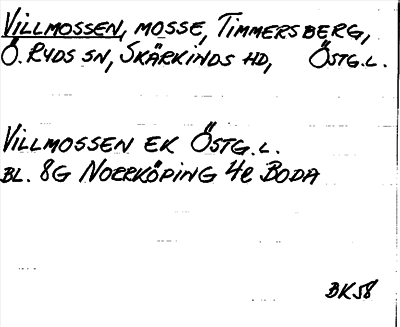 VILLMOSSEN, MOSSE, TIMMERSBERG,
Ö. RYDS SN, SKÄRKINDS HD, ÖSTG.L.
VILLMOSSEN EK ÖSTG.L.
BL. 8G NORRKÖPING 4e BODA
BK58